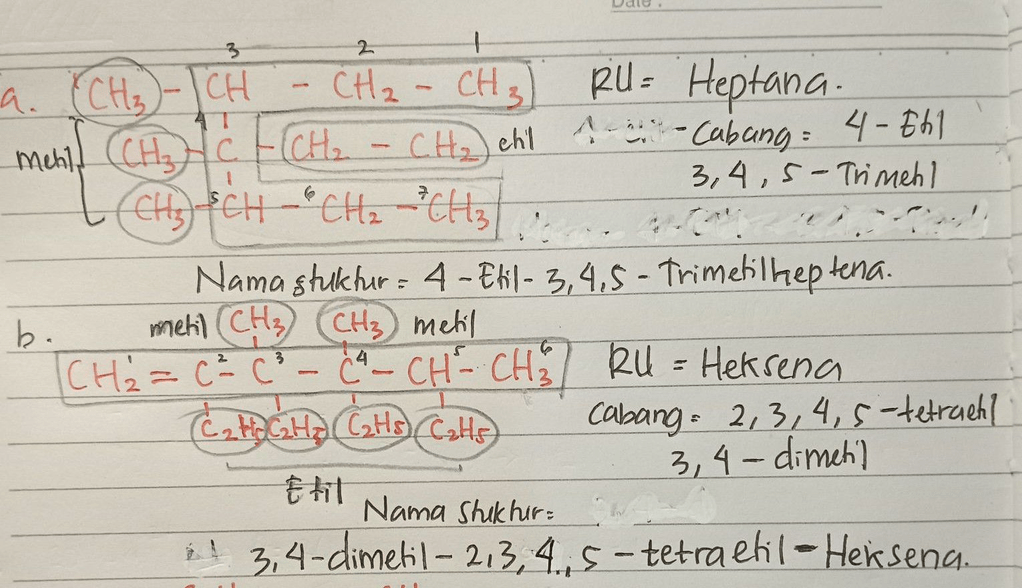 Date :
3 2 1
a. CH3 - CH - CH2 - CH3 RU = Heptana.
4
metil CH3 - C - CH2 - CH2 etil - Cabang = 4 - Etil
3, 4, 5 - Trimetil
CH3 - 5 CH - 6 CH2 - 7 CH3
Nama stuktur = 4 - Etil - 3, 4, 5 - Trimetilheptena.
b. metil CH3 CH3 metil
CH2 1 = C 2 - C 3 - C 4 - CH 5 - CH3 6 RU = Heksena
C2H5 C2H5 C2H5 C2H5 Cabang = 2, 3, 4, 5 - tetraetil
3, 4 - dimetil
Etil
Nama Stuktur =
3, 4 - dimetil - 2, 3, 4, 5 - tetraetil - Heksena.